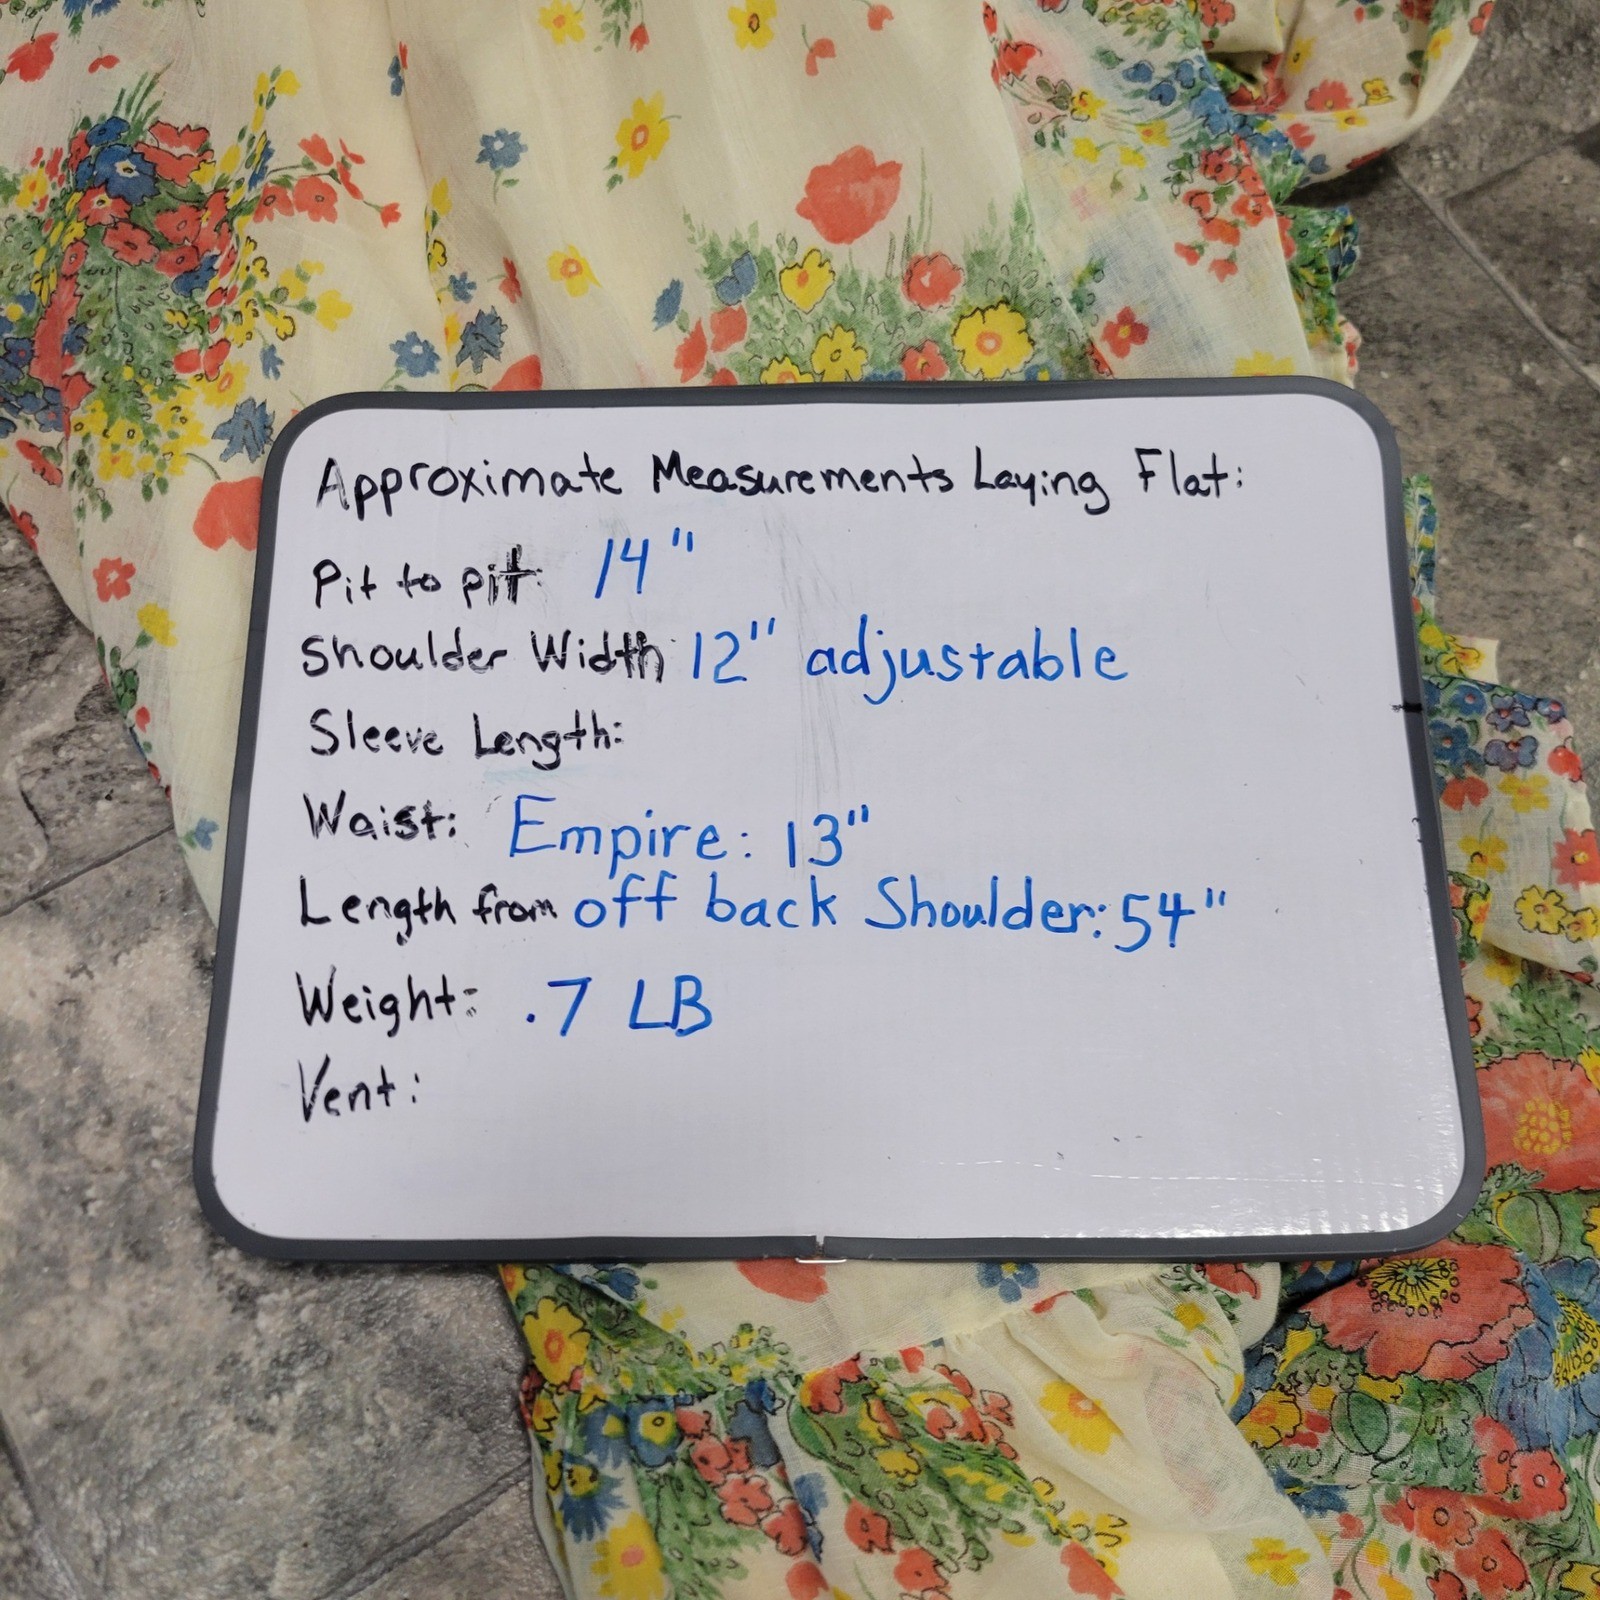 Approximate Measurements Laying Flat:
Pit to pit: 14"
Shoulder Width: 12" adjustable
Sleeve Length:
Waist: Empire: 13"
Length from off back Shoulder: 54"
Weight: .7 LB
Vent: